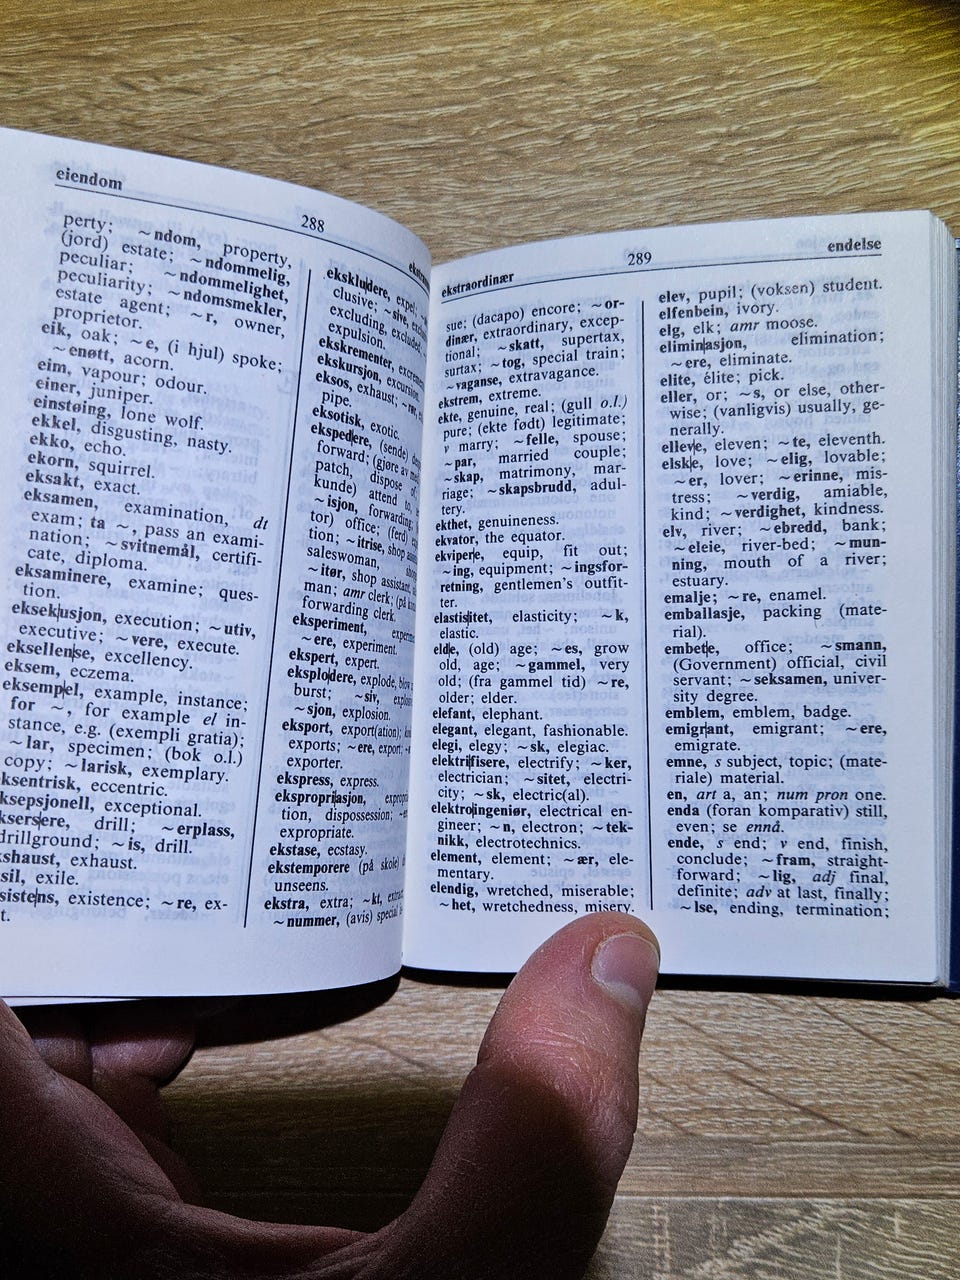 eiendom
288
perty; ~ndom, property,
(jord) estate; ~ndommelig,
peculiar; ~ndommelighet,
peculiarity; ~ndomsmekler,
estate agent; ~r, owner,
proprietor.
eik, oak; ~e, (i hjul) spoke;
~enøtt, acorn.
eim, vapour; odour.
einer, juniper.
einstøing, lone wolf.
ekkel, disgusting, nasty.
ekko, echo.
ekorn, squirrel.
eksakt, exact.
eksamen, examination, dt
exam; ta ~, pass an exami-
nation; ~svitnemål, certifi-
cate, diploma.
eksaminere, examine; ques-
tion.
eksek|usjon, execution; ~utiv,
executive; ~vere, execute.
eksellen|se, excellency.
eksem, eczema.
eksemp|el, example, instance;
for ~, for example el in-
stance, e.g. (exempli gratia);
~lar, specimen; (bok o.l.)
copy; ~larisk, exemplary.
ksentrisk, eccentric.
ksepsjonell, exceptional.
ksers|ere, drill; ~erplass,
drillground; ~is, drill.
kshaust, exhaust.
sil, exile.
siste|ns, existence; ~re, ex-
t.
eksklu|dere, expel;
clusive; ~sive,
excluding, excluded,
expulsion.
ekskrementer,
ekskursjon, excursion
eksos, exhaust;
pipe.
eksotisk, exotic.
eksped|ere, (sende)
forward; (gjøre av med)
patch, dispose of;
kunde) attend to,
~isjon, forwarding;
tor) office; (ferd)
tion; ~itrise, shop
saleswoman,
~itør, shop assistant,
man; amr clerk; (på
forwarding clerk.
eksperiment,
~ere, experiment.
ekspert, expert.
eksplo|dere, explode, blow
burst; ~siv,
~sjon, explosion.
eksport, export(ation);
exports; ~ere, export;
exporter.
ekspress, express.
ekspropri|asjon,
tion, dispossession;
expropriate.
ekstase, ecstasy.
ekstemporere (på skole)
unseens.
ekstra, extra; ~kt,
~nummer, (avis) special
ekstraordinær
289
endelse
sue; (dacapo) encore; ~or-
dinær, extraordinary, excep-
tional; ~skatt, supertax,
surtax; ~tog, special train;
~vaganse, extravagance.
ekstrem, extreme.
ekte, genuine, real; (gull o.l.)
pure; (ekte født) legitimate;
v marry; ~felle, spouse;
~par, married couple;
~skap, matrimony, mar-
riage; ~skapsbrudd, adul-
tery.
ekthet, genuineness.
ekvator, the equator.
ekviper|e, equip, fit out;
~ing, equipment; ~ingsfor-
retning, gentlemen's outfit-
ter.
elastis|itet, elasticity; ~k,
elastic.
eld|e, (old) age; ~es, grow
old, age; ~gammel, very
old; (fra gammel tid) ~re,
older; elder.
elefant, elephant.
elegant, elegant, fashionable.
elegi, elegy; ~sk, elegiac.
elektri|fisere, electrify; ~ker,
electrician; ~sitet, electri-
city; ~sk, electric(al).
elektro|ingeniør, electrical en-
gineer; ~n, electron; ~tek-
nikk, electrotechnics.
element, element; ~ær, ele-
mentary.
elendig, wretched, miserable;
~het, wretchedness, misery.
elev, pupil; (voksen) student.
elfenbein, ivory.
elg, elk; amr moose.
elimin|asjon, elimination;
~ere, eliminate.
elite, élite; pick.
eller, or; ~s, or else, other-
wise; (vanligvis) usually, ge-
nerally.
elleve, eleven; ~te, eleventh.
elsk|e, love; ~elig, lovable;
~er, lover; ~erinne, mis-
tress; ~verdig, amiable,
kind; ~verdighet, kindness.
elv, river; ~ebredd, bank;
~eleie, river-bed; ~mun-
ning, mouth of a river;
estuary.
emalje; ~re, enamel.
emballasje, packing (mate-
rial).
embet|e, office; ~smann,
(Government) official, civil
servant; ~seksamen, univer-
sity degree.
emblem, emblem, badge.
emigr|ant, emigrant; ~ere,
emigrate.
emne, s subject, topic; (mate-
riale) material.
en, art a, an; num pron one.
enda (foran komparativ) still,
even; se ennå.
ende, s end; v end, finish,
conclude; ~fram, straight-
forward; ~lig, adj final,
definite; adv at last, finally;
~lse, ending, termination;